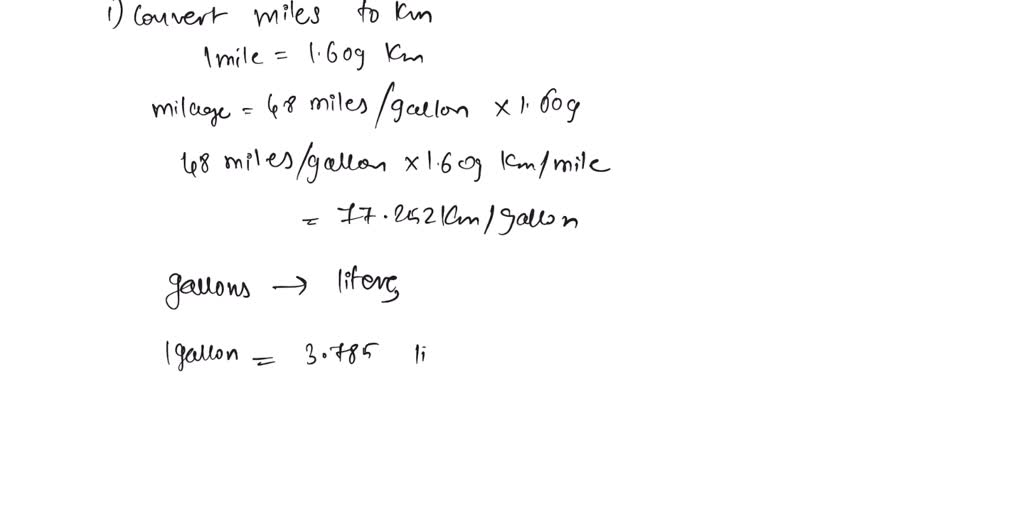 1) Convert miles to Km
1 mile = 1.609 Km
milage = 48 miles/gallon × 1.609
48 miles/gallon × 1.609 Km/mile
= 77.252 Km/gallon
gallons → liters
1 gallon = 3.785 li